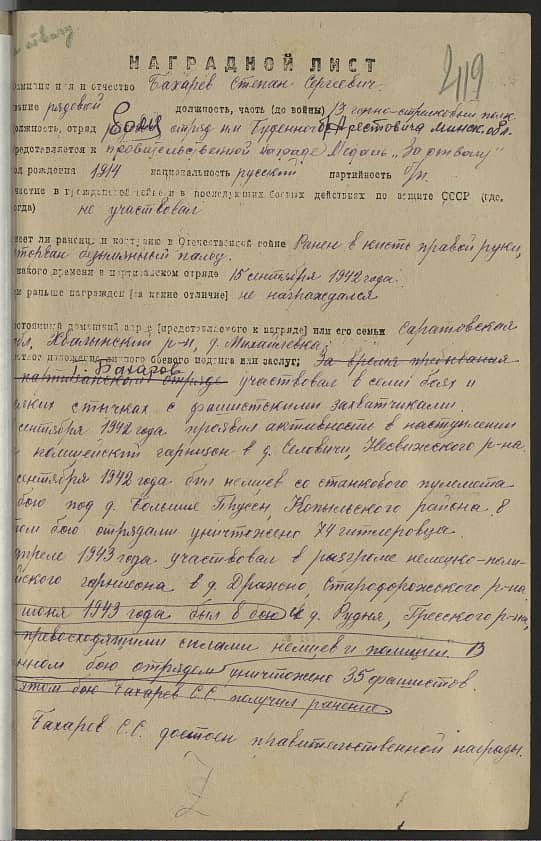 за отвагу
419
НАГРАДНОЙ ЛИСТ
Фамилия имя и отчество Бахарев Степан Сергеевич.
звание рядовой должность, часть (до войны) 13 горно-стрелковый полк
должность, отряд Боец отряд им Буденного Минск. обл.
редставляется к правительственной награде Медаль "За отвагу"
од рождения 1914 национальность русский партийность б/п.
частие в гражданской войне и в последующих боевых действиях по защите СССР (где,
огда) не участвовал
меет ли ранения и контузию в Отечественной войне Ранен в кисть правой руки,
оторван безымянный палец.
какого времени в партизанском отряде 15 сентября 1942 года.
ем раньше награжден (за какие отличия) не награждался
остоянный домашний адрес (представляемого к награде) или его семьи Саратовская
бл, Хвалынский р-н, д. Михайлевка.
раткое изложение личного боевого подвига или заслуг: За время пребывания
партизанском отряде т. Бахарев участвовал в семи боях и
елких стычках с фашистскими захватчиками.
сентября 1942 года проявил активность в наступлении
немецкий гарнизон в д. Селовичи, Несвижского р-на.
сентября 1942 года бил немцев со станкового пулемета
бою под д. Большие Прусы, Копыльского района. В
том бою отрядами уничтожено 74 гитлеровца.
апреле 1943 года участвовал в разгроме немецко-поли-
йского гарнизона в д. Дражно, Стародорожского р-на
июня 1943 года был в бою у д. Рудня, Гресского р-на,
превосходящими силами немцев и полиции. В
нном бою отрядом уничтожено 35 фашистов.
этом бою Бахарев С.С. получил ранение.
Бахарев С.С. достоен правительственной награды.